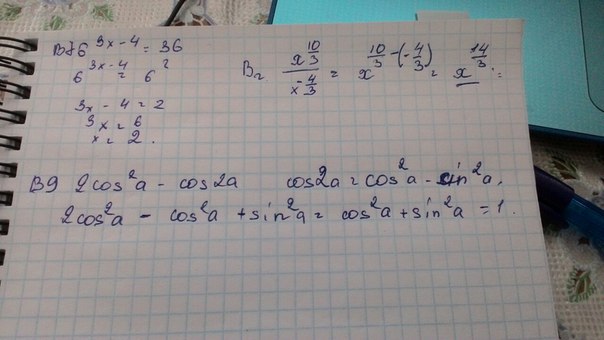 В8 6^{3x-4} = 36
6^{3x-4} = 6^2
3x - 4 = 2
3x = 6
x = 2.
В2 \frac{x^{\frac{10}{3}}}{x^{-\frac{4}{3}}} = x^{\frac{10}{3} - (-\frac{4}{3})} = x^{\frac{14}{3}} =
В9 2cos^2a - cos2a cos2a = cos^2a - sin^2a.
2cos^2a - cos^2a + sin^2a = cos^2a + sin^2a = 1.